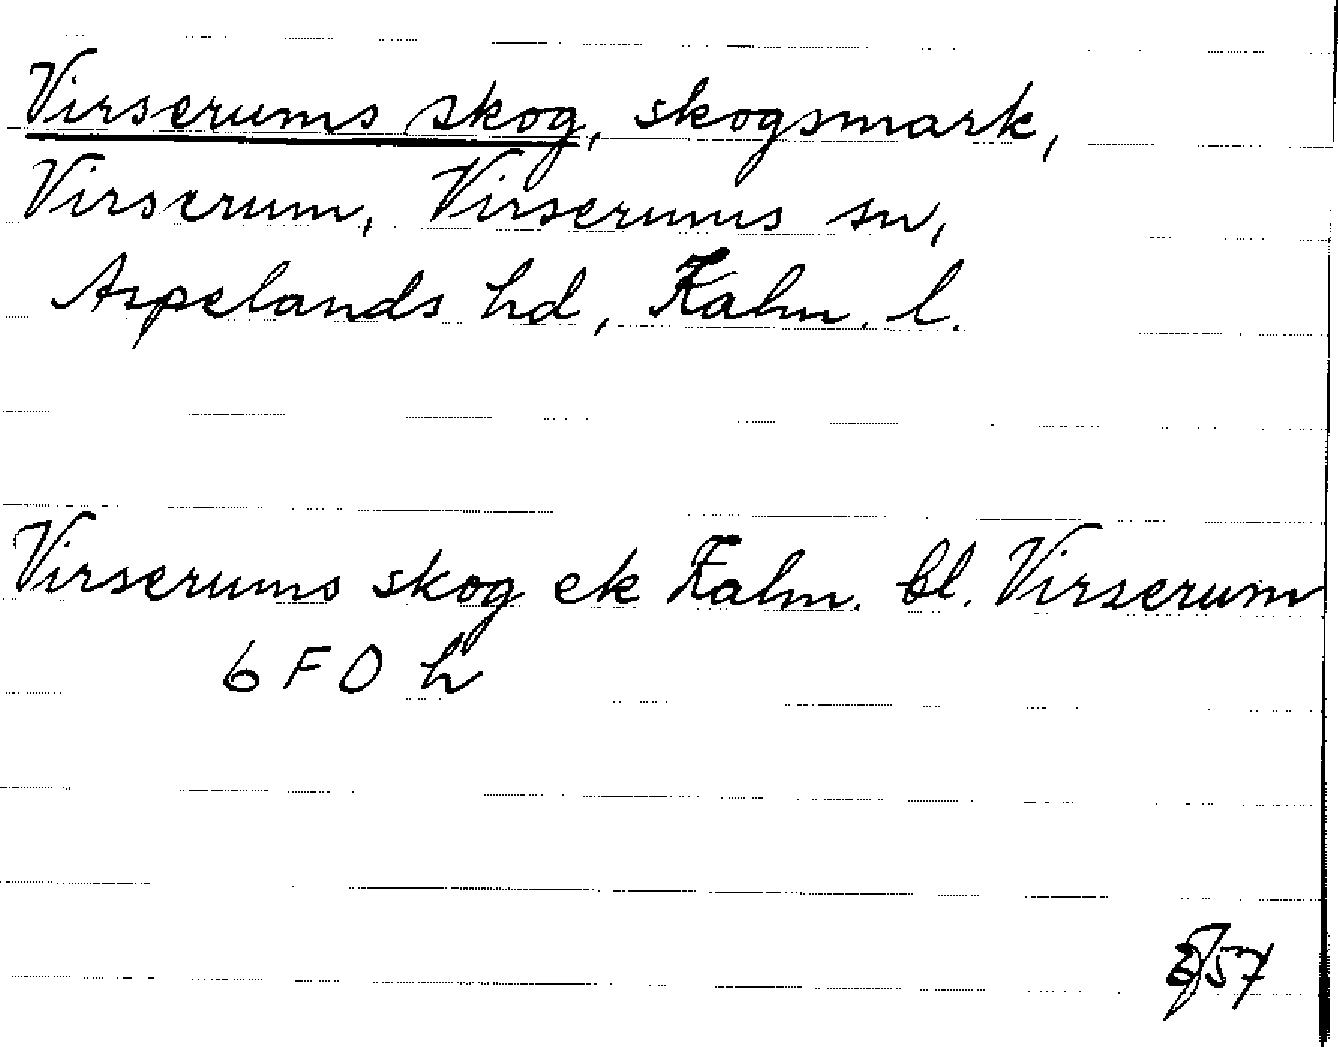 Virserums skog, skogsmark,
Virserum, Virserums sn,
Aspelands hd, Kalm. l.
Virserums skog ek Kalm. bl. Virserum
6 F O h